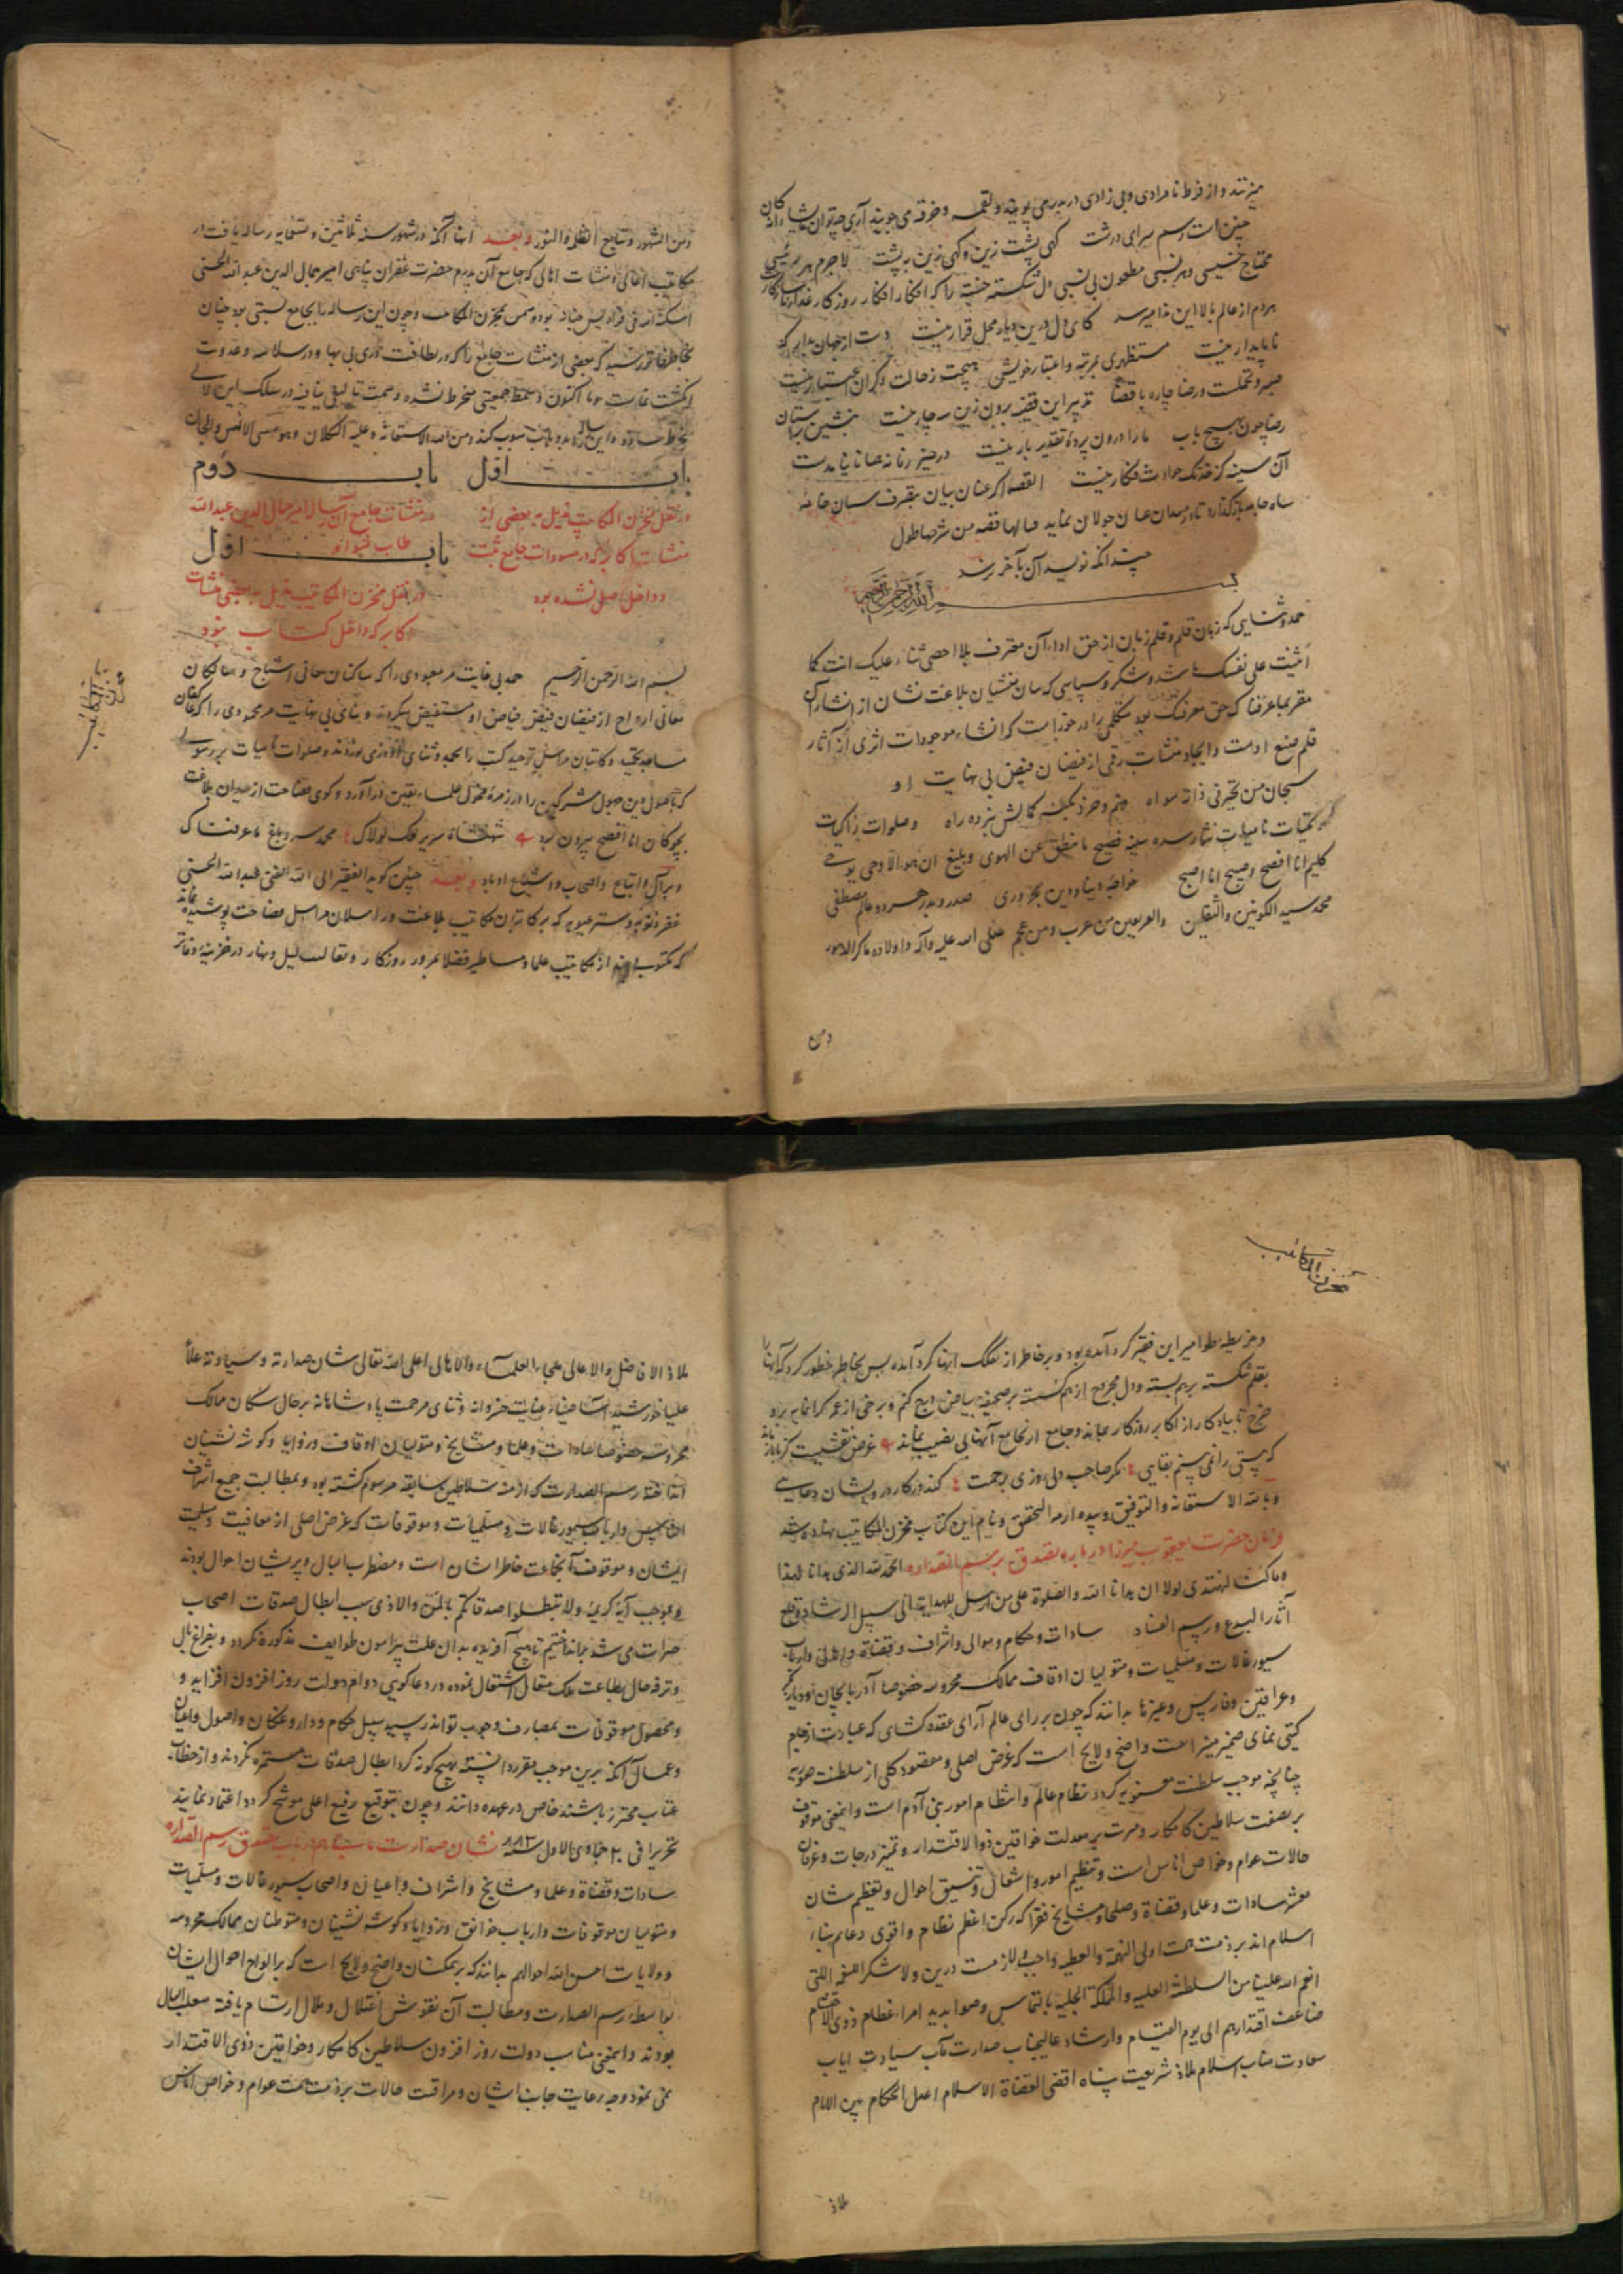 میزنند و از فرط نامرادی و بی زادی در بدر می پویند و لقمه و خرقه می جویند آری چه توان
چنین است رسم سرای درشت گهی پشت زین و گهی زین به پشت لاجرم هر
محتاج خسیسی و هر نسبی مطعون بی نسبی دل شکسته خسته را که افکار افکار روزگار غدار
هر دم از عالم بالا این ندا میرسد کای دل درین دیار محل قرار نیست دست از جهان بدار که
ناپایدار نیست مستظهری بمرتبه و اعتبار خویش هیچت ز حالت دگران اعتبار نیست
صبر و تحملست و رضا چاره با قضا تدبیر این قضیه برون زین سه چار نیست
رضا چون هیچ باب ما را درون پرده تقدیر بار نیست در حیز زمانه همانا نیامدست
آن سینه کز خدنک حوادث فکار نیست القصه اگر عنان بیان بتصرف لسان خامه
سیاه جامه باز گذارد تا در میدان جولان نماید فیالها قصة من شرحها طول
چند آنکه نویسد آن بآخر نرسد
بسم الله الرحمن الرحیم
حمد و ثنایی که زبان قلم و قلم زبان از حق اداء آن معترف بلا احصی ثناء علیک انت کما
اثنیت علی نفسک باشد و شکر و سپاسی که لسان منشیان بلاغت نشان از انشاء آن
مقر بما عرفناک حق معرفتک بود متکلمی را در خور است که انشاء موجودات اثری از آثار
قلم صنع اوست و ایجاد منشآت رقمی از فیضان فیض بی نهایت او
سبحان من تحیر فی ذاته سواه فهم و خرد بکنه کمالش نبرده راه و صلوات زاکیات
و تحیات نامیات نثار سده سنیه فصیح ما ینطق عن الهوی و بلیغ ان هو الا وحی یوحی
کلیم انا افصح و صبیح انا اصبح خواجه دنیا و دین صدر و بدر هر دو عالم مصطفی
محمد سید الکونین والثقلین والفریقین من عرب و من عجم صلی الله علیه وآله و اولاده ما کر الدهور
ومن
ومن الشهور و تتابع الظل والنور و بعد انها آنکه در شهور سنه ثلاثین و تسعمایه رساله یافت در
مکاتیب اعالی و منشآت اهالی که جامع آن پدرم حضرت غفران پناهی امیر جمال الدین عبدالله الحسنی
اسکنه الله فی فرادیس جنانه بوده مسمی بمخزن المکاتیب و چون این رساله را بجامع نسبتی بود چنان
بخاطر فاتر رسید که بعضی از منشآت جامع را که در لطافت دری بی بها و در سلاست و عذوبت
انگشت نماست و تا اکنون در سمط جمعیتی منخرط نشده و سمت تالیف نیافته در سلک این لآلی
باب اول باب دوم
در نقل مخزن المکاتیب مذیل به بعضی از در منشآت جامع آن رساله امیر جمال الدین عبدالله
منشآت اکابر که در مسودات جامع ثبت طاب مثواه
و داخل اصل نشده بود
باب اول
در نقل مخزن المکاتیب مذیل به بعضی منشآت
اکابر که داخل کتاب نبود
بسم الله الرحمن الرحیم حمد بی غایت مر معبودی را که ساکنان مغانی اشباح و سالکان
معانی ارواح از فیضان فیض فیاض او مستفیض میگردند و ثنای بی نهایت مر محمودی را که
و کاتبان مراسل توحید کتب را بحمد و ثنای و صلوات نامیات بر رسولی
مشرکین را در زمره فحول علماء یقین درآورد و گوی فصاحت از میدان بلاغت
بچوگان انا افصح بیرون برد شهنشاه سریر ملک لولاک محمد سرور بلیغ ما عرفناک
و بر آل و اتباع و اصحاب و اشیاع او باد و بعد چنین گوید الفقیر الی الله الغنی عبدالله الحسنی
غفر ذنوبه و ستر عیوبه که بر کاتبان مکاتیب بلاغت و راسلان مراسل فصاحت پوشیده نماند
که مکتوبی از مکاتیب علما و مساطیر فضلا بمرور روزگار و تعاقب لیل و نهار در خزینه دفاتر
مخزن المکاتیب
مخزن المکاتیب
و خریطه طوامیر این فقیر گرد آمده بود و بر خاطر از تفکک آنها گرد آمده پس بخاطر خطور کرد که آنها را
بقلم شکسته برهم بسته و دل مجروح از هم گسسته بر صحیفه بیاض درج کنم و برخی از عمر گرانمایه برو
خرج تا بیادگار از اکابر روزگار بماند و جامع از مجامع آنها بی نصیب نماند غرض نقشیست کز ما باز ماند
که هستی را نمی بینم بقایی مگر صاحب دلی روزی برحمت کند در کار درویشان دعایی
و بالله الاستعانه والتوفیق و بیده ازمة التحقیق و نام این کتاب مخزن المکاتیب نهاده شد
فرمان حضرت یعقوب میرزا در باره تصدق بر رسم الصداره الحمد لله الذی هدانا لهذا
وما کنا لنهتدی لولا ان هدانا الله والصلوة علی من ارسل للهدایة الی سبیل الرشاد و قلع
آثار البدع و رسم الفساد سادات و حکام و موالی و اشراف و قضاة و اهالی و ارباب
سیورغالات و مسلمیات و متولیان اوقاف ممالک محروسه خصوصا آذربایجان و دیاربکر
و عراقین و فارس و غیرها بدانند که چون بر رای عالم آرای عقده کشای که عبارت از جام
گیتی نمای ضمیر منیر است واضح و لایح است که غرض اصلی و مقصود کلی از سلطنت صوریه
چنانچه موجب سلطنت معنویه گردد نظام عالم و انتظام امور بنی آدم است و اینمعنی موقوف
بر نصفت سلاطین کامکار و مرتب بر معدلت خواقین ذوالاقتدار و تمییز درجات و عرفان
حالات عوام و خواص اناس است و تنظیم امور و اشغال و تنسیق احوال و تعظیم شان
معشر سادات و علما و قضاة و صلحا و مشایخ فقرا که رکن اعظم نظام و اقوی دعایم بناء
اسلام اند بر ذمت همت اولی النهیة والعطیه واجب و لازمست درین ولا شکرا لنعمة اللتی
انعم الله علینا من السلطنة العلیه والمملکة الجلیة بالتماس و صوابدید امراء عظام ذوی الاحتشام
ضاعف اقتدارهم الی یوم القیام و ارشاد عالیجناب صدارت مآب سیادت ایاب
سعادت مناب اسلام ملاذ شریعت پناه اقضی القضاة الاسلام اعدل الحکام بین الانام
ملاذ
ملاذ الافاضل والاعالی ملجاء العلماء والاهالی اعلی الله تعالی شان صدارته و سیادته علاء
علیا خورشید آسا ضیاء عنایت خسروانه و ثنای مرحمت پادشاهانه بر حال سکان ممالک
محروسه خصوصا سادات و علما و مشایخ و متولیان اوقاف و زوایا و گوشه نشینان
انداخته رسم الصدارت که از منه سلاطین سابقه مرسوم گشته بود و بمطالبت جمیع اشراف
و ارباب سیورغالات و مسلمیات و موقوفات که غرض اصلی از معافیت و مسلمیت
ایشان و موقوف آنجماعت خاطر ایشان است و مضطرب البال و پریشان احوال بودند
و بموجب آیه کریمه ولا تبطلوا صدقاتکم بالمن والاذی سبب ابطال صدقات اصحاب
خیرات می شد برانداختیم تا هیچ آفریده بدان علت پیرامون طوایف مذکوره نگردد و بفراغ بال
و ترفه حال بطاعت ملک متعال اشتغال نموده در دعاگویی دوام دولت روز افزون افزایند و
و محصول موقوفات بمصارف وجوب تواند رسید سبیل حکام و داروغگان و اصول و اعیان
و عمال آنکه برین موجب مقرر دانسته بهیچ گونه گرد ابطال صدقات مستمره نگردند و از خطاب
عتاب محترز باشند خاص در عهده دانند و چون بتوقیع رفیع اعلی موشح گردد اعتماد نمایند
تحریرا فی ۲۰ جمادی الاول سنه ۸۸۳ نشان صدارت مآب در باب تصدق رسم الصداره
سادات و قضاة و علما و مشایخ و اشراف و اعیان و اصحاب سیورغالات و مسلمیات
و متولیان موقوفات و ارباب خوانق و زوایا و گوشه نشینان و متوطنان ممالک محروسه
و ولایات احسن الله احوالهم بدانند که بر همگنان واضح و لایح است که بر الواح احوال ایشان
بواسطه رسم الصدارت و مطالبت آن نقوش اختلال و ملال ارتسام یافته
بودند و اینمعنی مناسب دولت روز افزون سلاطین کامکار و خواقین ذوی الاقتدار
نمی نمود و چه رعایت جانب ایشان و مراقبت حالات بر ذمت همت عوام و خواص اناس